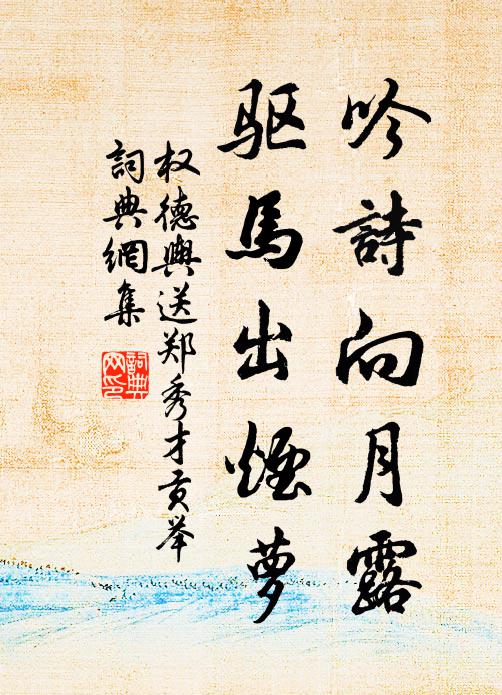 吟詩向月露
驱馬出煙萝
权德輿送郑秀才贡举
詞典網集
詞典
网印